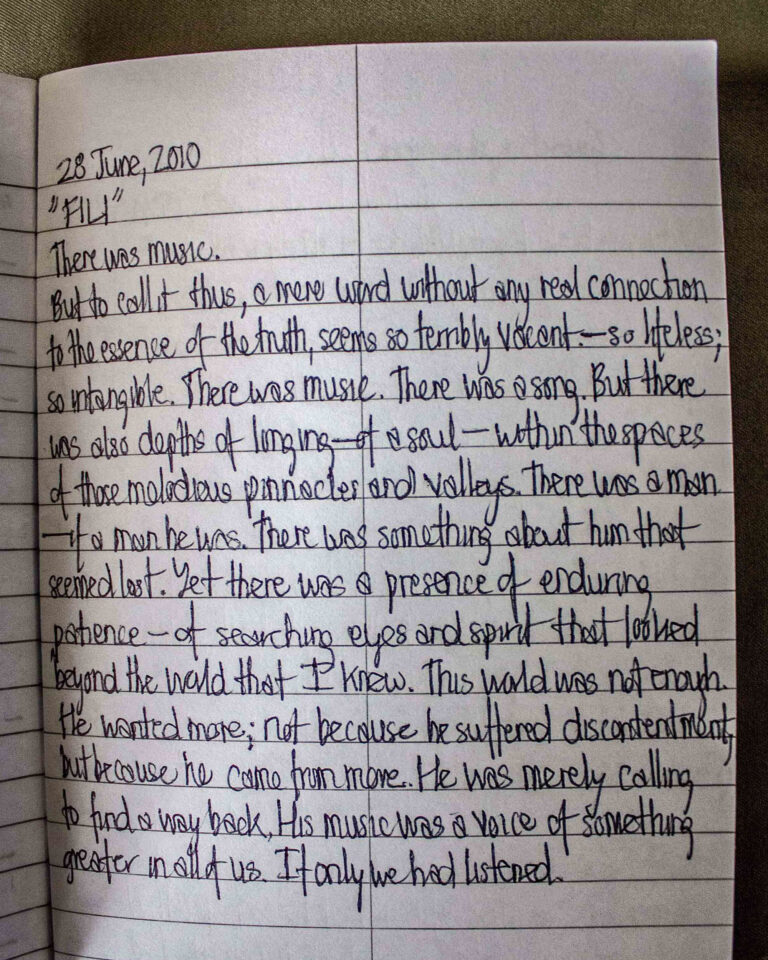 28 June, 2010
"FILI"
There was music.
But to call it thus, a mere word without any real connection
to the essence of the truth, seems so terribly vacant—so lifeless;
so intangible. There was music. There was a song. But there
was also depths of longing—of a soul—within the spaces
of those melodious pinnacles and valleys. There was a man
—if a man he was. There was something about him that
seemed lost. Yet there was a presence of enduring
patience—of searching eyes and spirit that looked
beyond the world that I knew. This world was not enough.
He wanted more; not because he suffered discontentment,
but because he came from more. He was merely calling
to find a way back. His music was a voice of something
greater in all of us. If only we had listened.